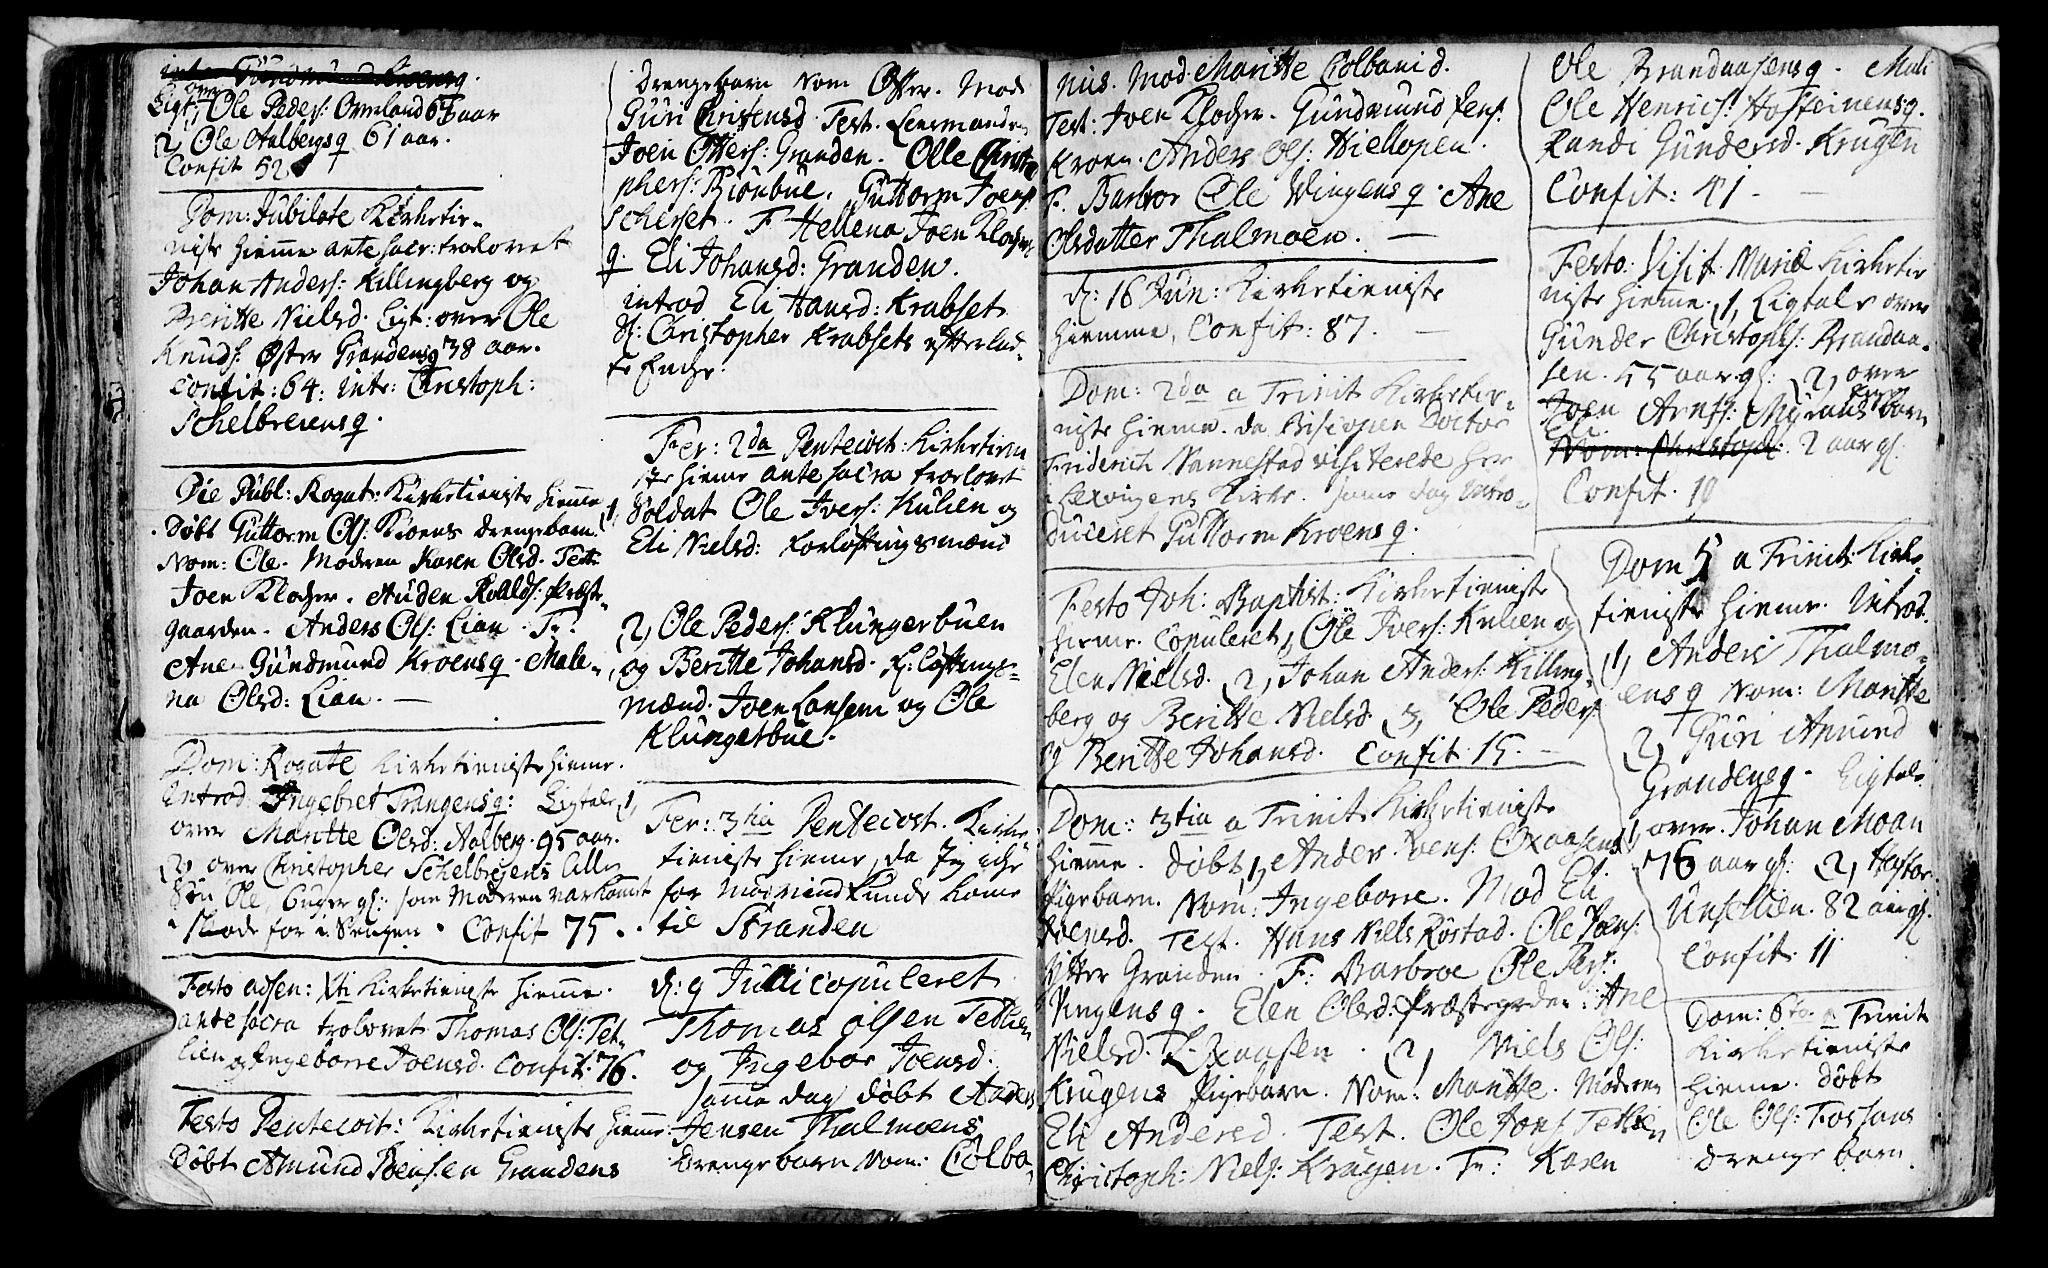 over
Ligt: 1, Ole Peders: Omeland 67 aar
2, Ole Aalbergs q 61 aar.
Confit 52
Dom: Jubilate Kirketie-
niste hieme ante sacr: trolovet
Johan Anders: Killingberg og
Beritte Nielsd. Ligt: over Ole
Knuds: Øster Grandens q 38 aar.
Confit: 64: Intr: Christoph:
Schelbreiens q.
Die Publ: Rogat: Kirketieniste hieme
Døbt Guttorm Ols: Kroens drengebarn.
Nom: Ole. Moderen Karen Olsd. Test:
Joen Klocher. Auden Roalds: Præste-
gaarden. Anders Ols: Lian. Fr:
Ane Gundmund Kroens q. Male-
na Olsd: Lian. —
Dom: Rogate Kirketieniste hieme.
Introd: Ingebret Trangens q: Ligtale 1,
over Maritte Olsd: Aalberg. 95 aar.
2, over Christopher Schelbreiens lille
Søn Ole, 6 uger gl: som Moderen var komt
i Skade for i Sengen. Confit 75.
Festo adsen: Xti Kirketieniste hieme.
ante sacra trolovet Thomas Ols: Tet-
lien og Ingeborre Joensd. Confit: 76.
Festo Pentecost: Kirketieniste hieme
Døbt Amund Joensen Grandens
drengebarn Nom Otter. Mod
Guri Christensd. Test. Lensmanden
Joen Otters: Granden. Olle Christo
phers: Biønbue. Guttorm Joens:
Scherset. F. Hellena Joen Klochers
q. Eli Johansd: Granden.
introd Eli Hansd: Krabset
Sl: Christopher Krabsets efterlad-
te Enche.
Fer: 2da Pentecost: Kirketieni
ste hieme ante sacra trolovet
1, Soldat Ole Ivers: Kulien og
Eli Nielsd: Forløftingsmænd
2, Ole Peders: Klungerbuen
og Beritte Johansd. F: løftings-
mænd. Joen Lonsem og Ole
Klungerbue.
Fer: 3tia Pentecost. Kirke
tieniste hieme, da Jeg iche
for modvind kunde kome
til Stranden
d: 9 Juli copuleret
Thomas Olsen Tetlien
og Ingebor Joensd.
same dag døbt Anders
Jensen Thalmoens
drengebarn Nom: Colbo-
nius. Mod. Maritte Colbanid.
Test: Joen Klocher. Gundmund Jens:
Kroen. Anders Ols: Hiellopen.
F. Barbror Ole Vingens q. Ane
Olsdatter Thalmoen. —
d: 16 Jun: Kirketieniste
hiemme, Confit: 87. —
Dom: 2da a Trinit Kirketie-
niste hieme. da Biscopen Doctor
Friderich Nannestad visiterede her
i Lexvigens Kirke. same dag Intro-
duceret Guttorm Kroens q.
Festo Joh: Baptist: Kirketieniste
hieme. Copuleret 1, Ole Ivers: Kulien og
Elen Nielsd. 2, Johan Anders: Killing-
berg og Beritte Nielsd. 3, Ole Peders:
og Beritte Johansd. Confit 15. —
Dom: 3tia a Trinit Kirketieniste
hieme. døbt 1, Anders Joens: Oxaasens
Pigebarn. Nom: Ingeborre. Mod Eli
Joensd. Test. Hans Niels Røstad. Ole Joens:
Ytter Granden. F: Barbroe Ole
Vingens q. Elen Olsd. Præstegrden: Ane
Nielsd. Oxaasen. 2, Niels Ols:
Krugens Pigebarn. Nom: Maritte. Moderen
Eli Andersd. Test. Ole Jons Tetlien
Christoph: Niels: Krugen. Fr: Karen
Ole Brandaasens q. Mali
Ole Henrichs: Hosteinens q.
Randi Gundersd. Krugen
Confit: 41 —
Festo: Visit: Mariæ Kirketie
niste hieme. 1, Ligtale over
Gunder Christophs: Brandaa-
sen. 55 aar gl: 2, over
Joen Arnts: Myrans barn
Eli.
Nom: Christoph: 2 aar gl:
Confit. 19
Dom 5 a Trinit Kirke-
tieniste hieme. Introd.
1, Anders Thalmo-
ens q Nom: Maritte
2, Guri Amund
Grandens q. Ligtale
1, over Johan Moan
76 aar gl: 2,
82 aar gl.
Confit: 11
Dom: 6ta a Trinit
Kirketieniste
hieme. Døbt
Ole Ols: Fossans
drenge barn